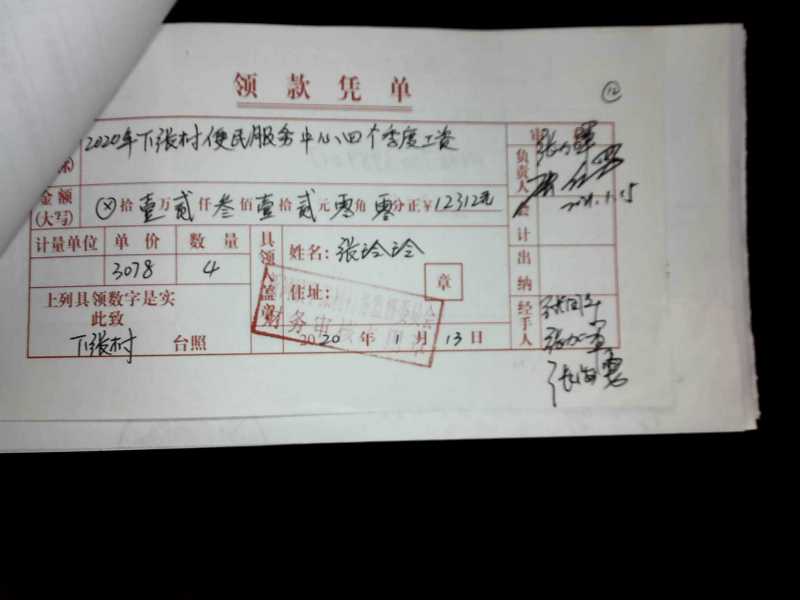 领款凭单
12
2020年下张村便民服务中心四个季度工资
金额(大写) ⊗拾壹万贰仟叁佰壹拾贰元零角零分正￥12312元
计量单位 单价 数量
3078 4
上列具领数字是实
此致
下张村 台照
具领人盖章
姓名：张玲玲
住址：
章
财务审核
2020年1月13日
审
负责人
会计
出纳
经手人